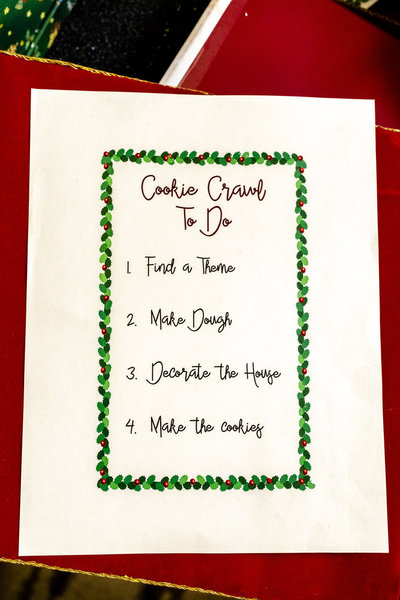 Cookie Crawl
To Do
1. Find a Theme
2. Make Dough
3. Decorate the House
4. Make the cookies